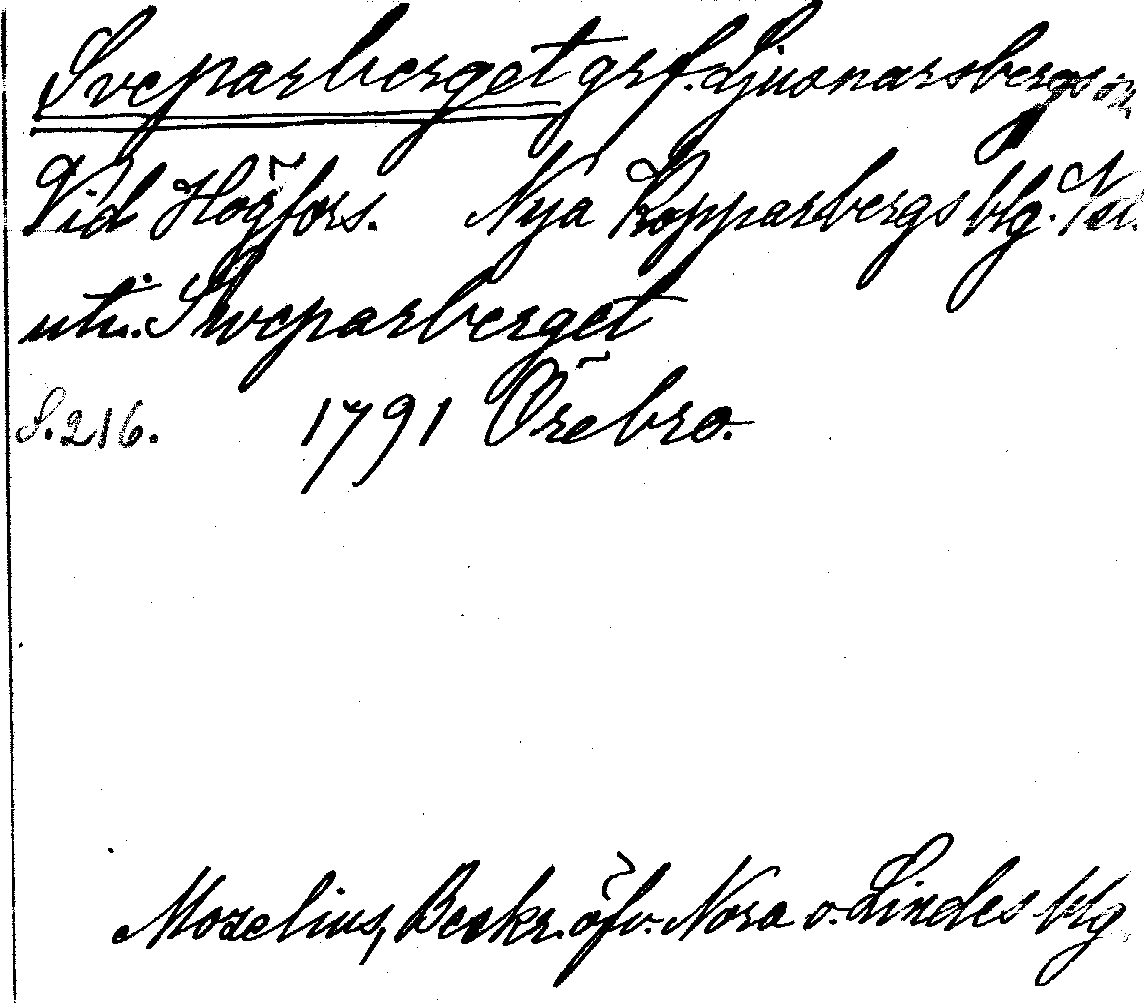 Sveparberget grf. Ljusnarsbergs sn
Vid Högfors. Nya Kopparbergs blg.
uti. Sweparberget
S. 216. 1791 Örebro.
Mozelius, Beskr. öfv. Nora o. Lindes blg.